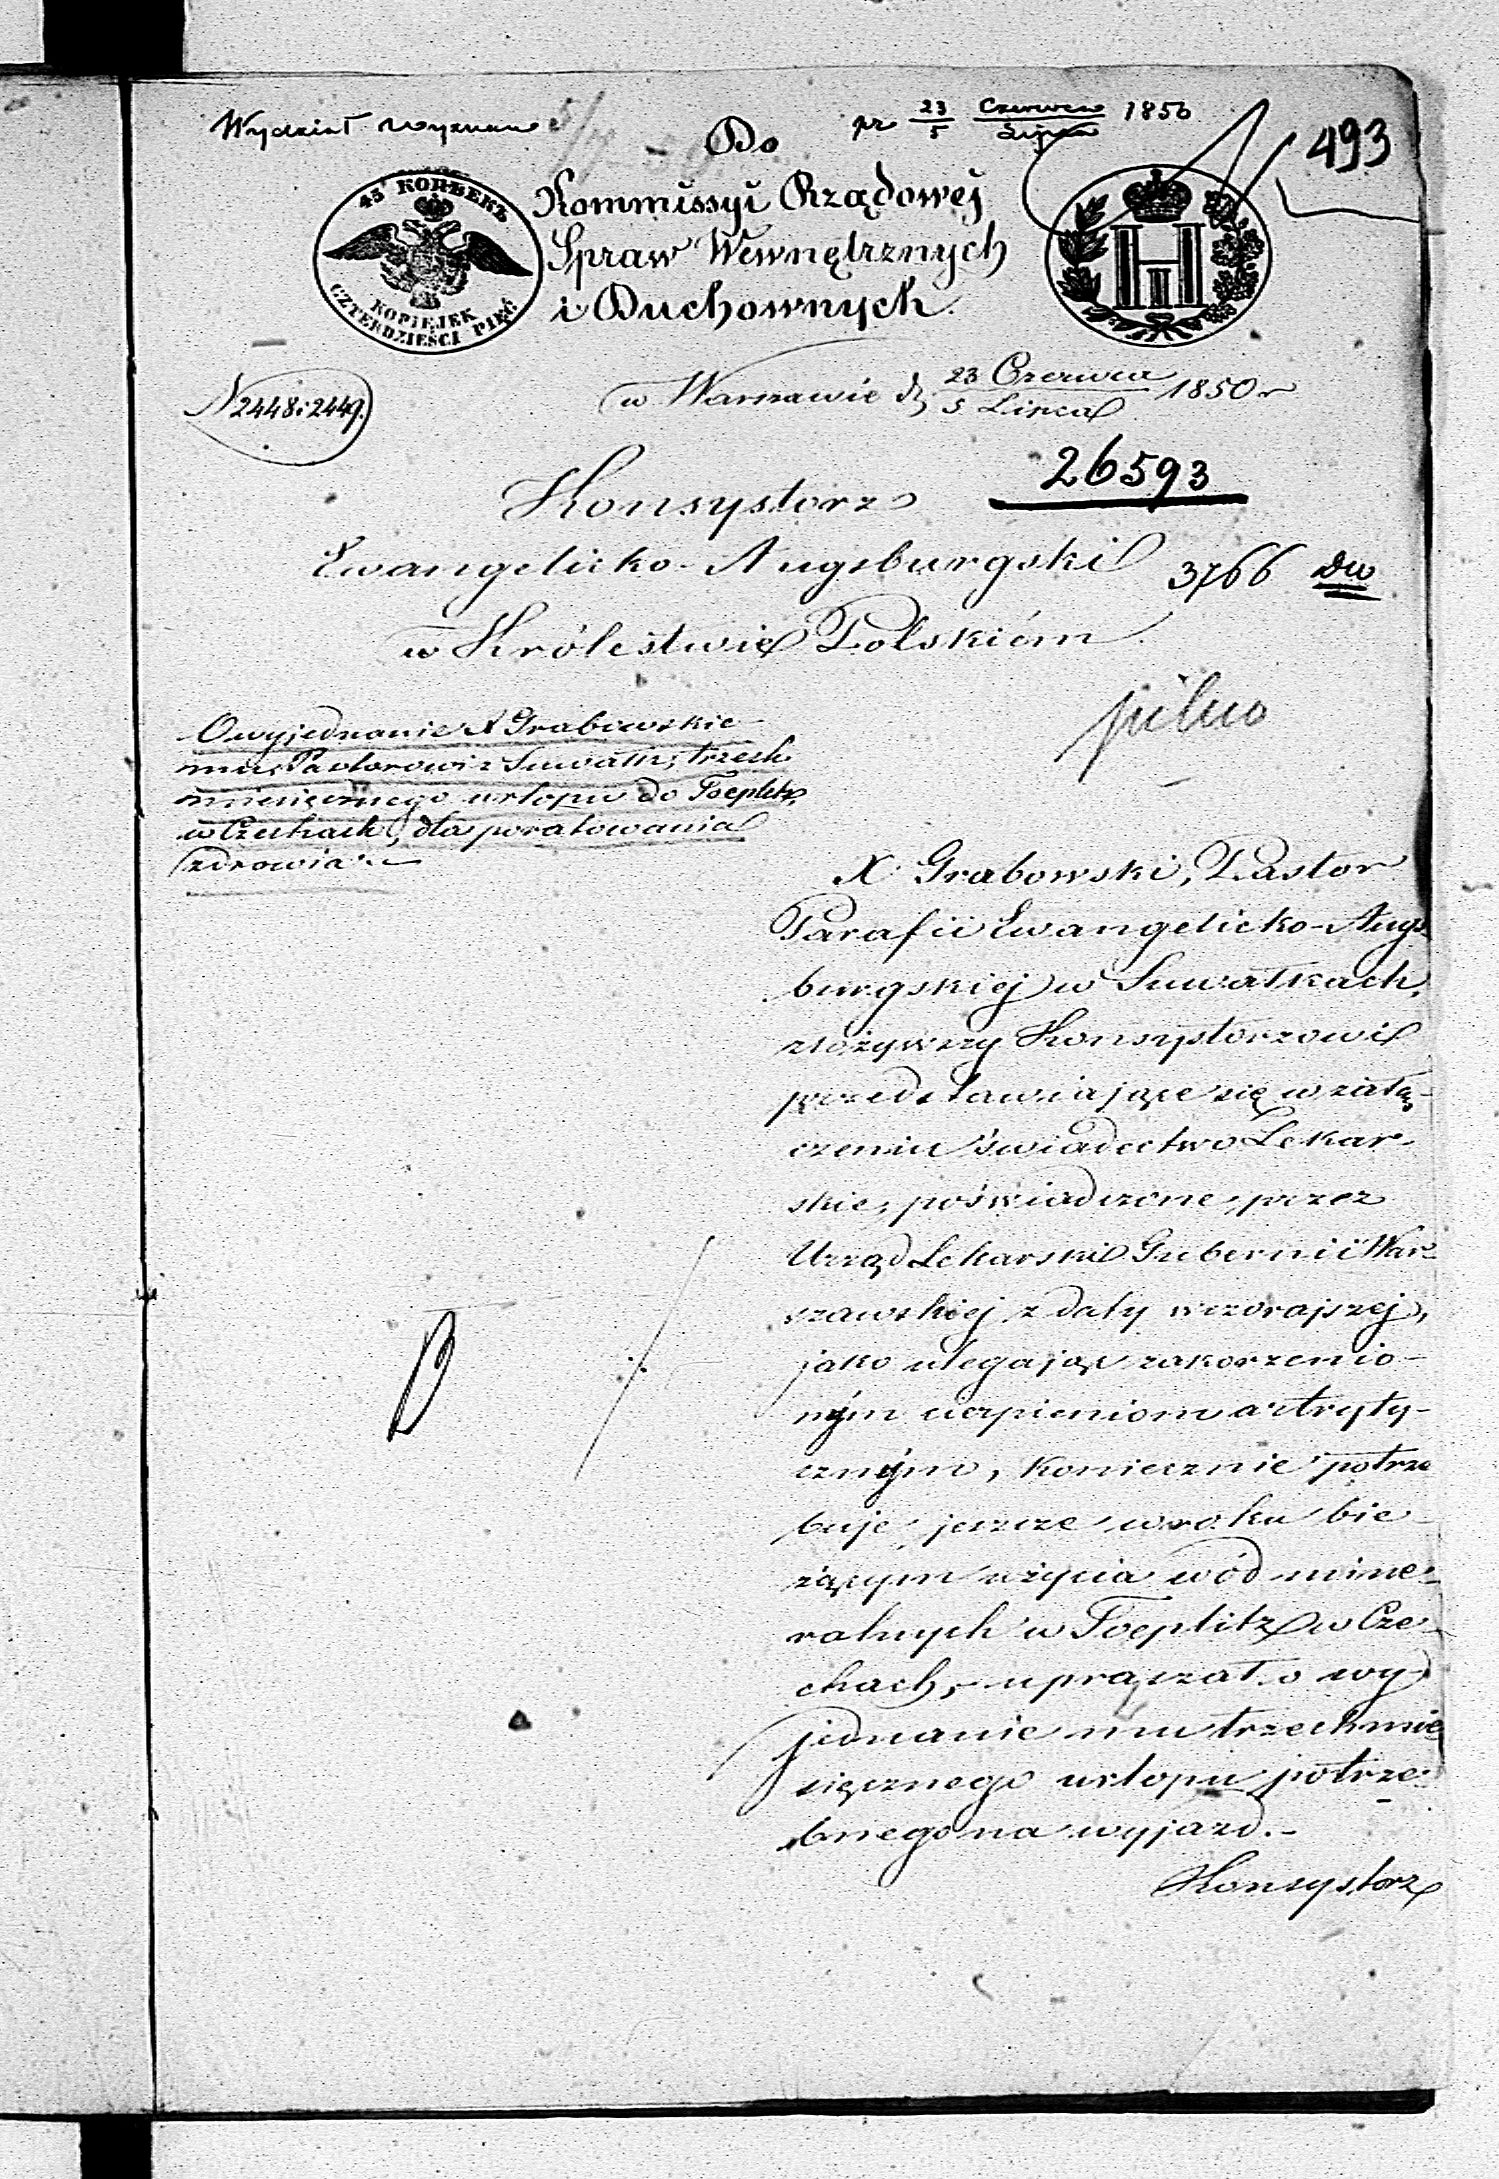 Wydział Wyznań
pr 23/5 Czerwca/Lipca 1850
493
Do
Kommissyi Rządowej
Spraw Wewnętrznych
i Duchownych.
45 КОПѢЕКЪ
KOPIEJEK
CZTERDZIEŚCI PIĘĆ
H
N 2448 i 2449.
w Warszawie d. 23 Czerwca/5 Lipca 1850 r
26593
Konsystorz
Ewangelicko-Augsburgski
3766 Dw
w Królestwie Polskiém.
pilno
O wyjednanie X Grabowskie-
mu, Pastorowi z Suwałk, trzech
miesięcznego urlopu do Toeplitz,
w Czechach, dla poratowania
zdrowia.
X Grabowski, Pastor
Parafii Ewangelicko-Augs
burgskiej w Suwałkach,
złożywszy Konsystorzowi
przedstawiające się w załą-
czeniu świadectwo Lekar-
skie, poświadczone, przez
Urząd Lekarski Gubernii War-
szawskiej z daty wczorajszej,
jako ulegając zakorzenio-
nym cierpieniom artryty-
cznym, koniecznie potrze
buje jeszcze w roku bie-
żącym użycia wód mine-
ralnych w Toeplitz w Cze-
chach, upraszał o wy-
jednanie mu trzechmie
sięcznego urlopu potrze-
bnego na wyjazd.-
Konsystorz